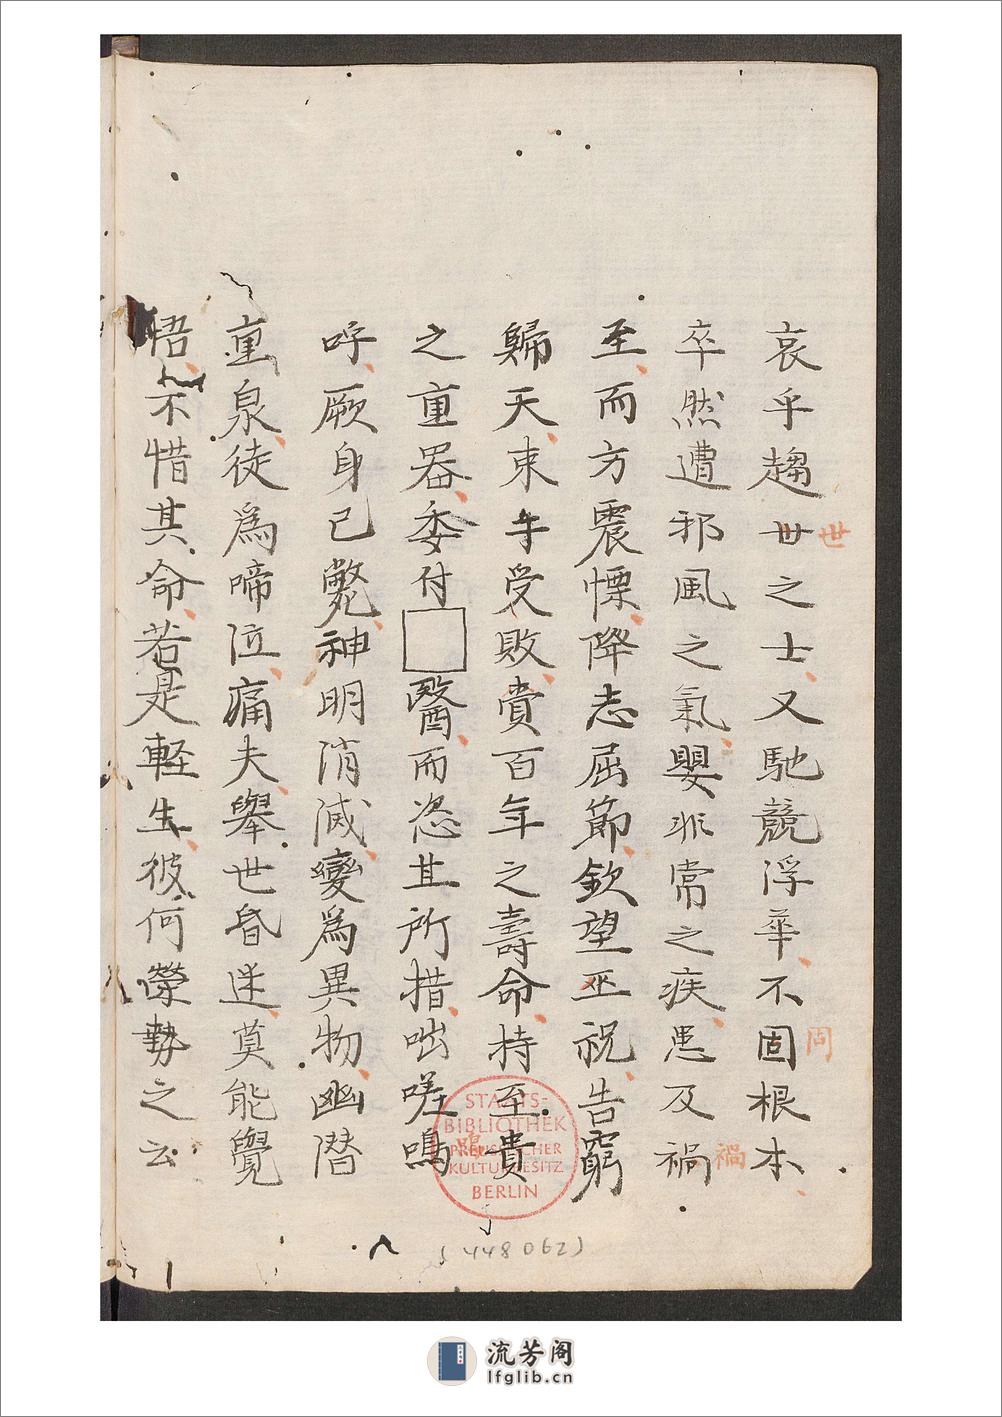 哀乎趨世之士又馳競浮華不固根本
世
固
卒然遭邪風之氣嬰非常之疾患及禍
禍
至而方震慄降志屈節欽望巫祝告窮
歸天束手受敗賫百年之壽命持至貴
之重器委付□醫而恣其所措咄嗟嗚
嗚
呼厥身已斃神明消滅變爲異物幽潛
重泉徒爲啼泣痛夫舉世昏迷莫能覺
悟不惜其命若是輕生彼何榮勢之云
STAATS-
BIBLIOTHEK
PREUSSISCHER
KULTURBESITZ
BERLIN
(448062)
流芳阁
lfglib.cn